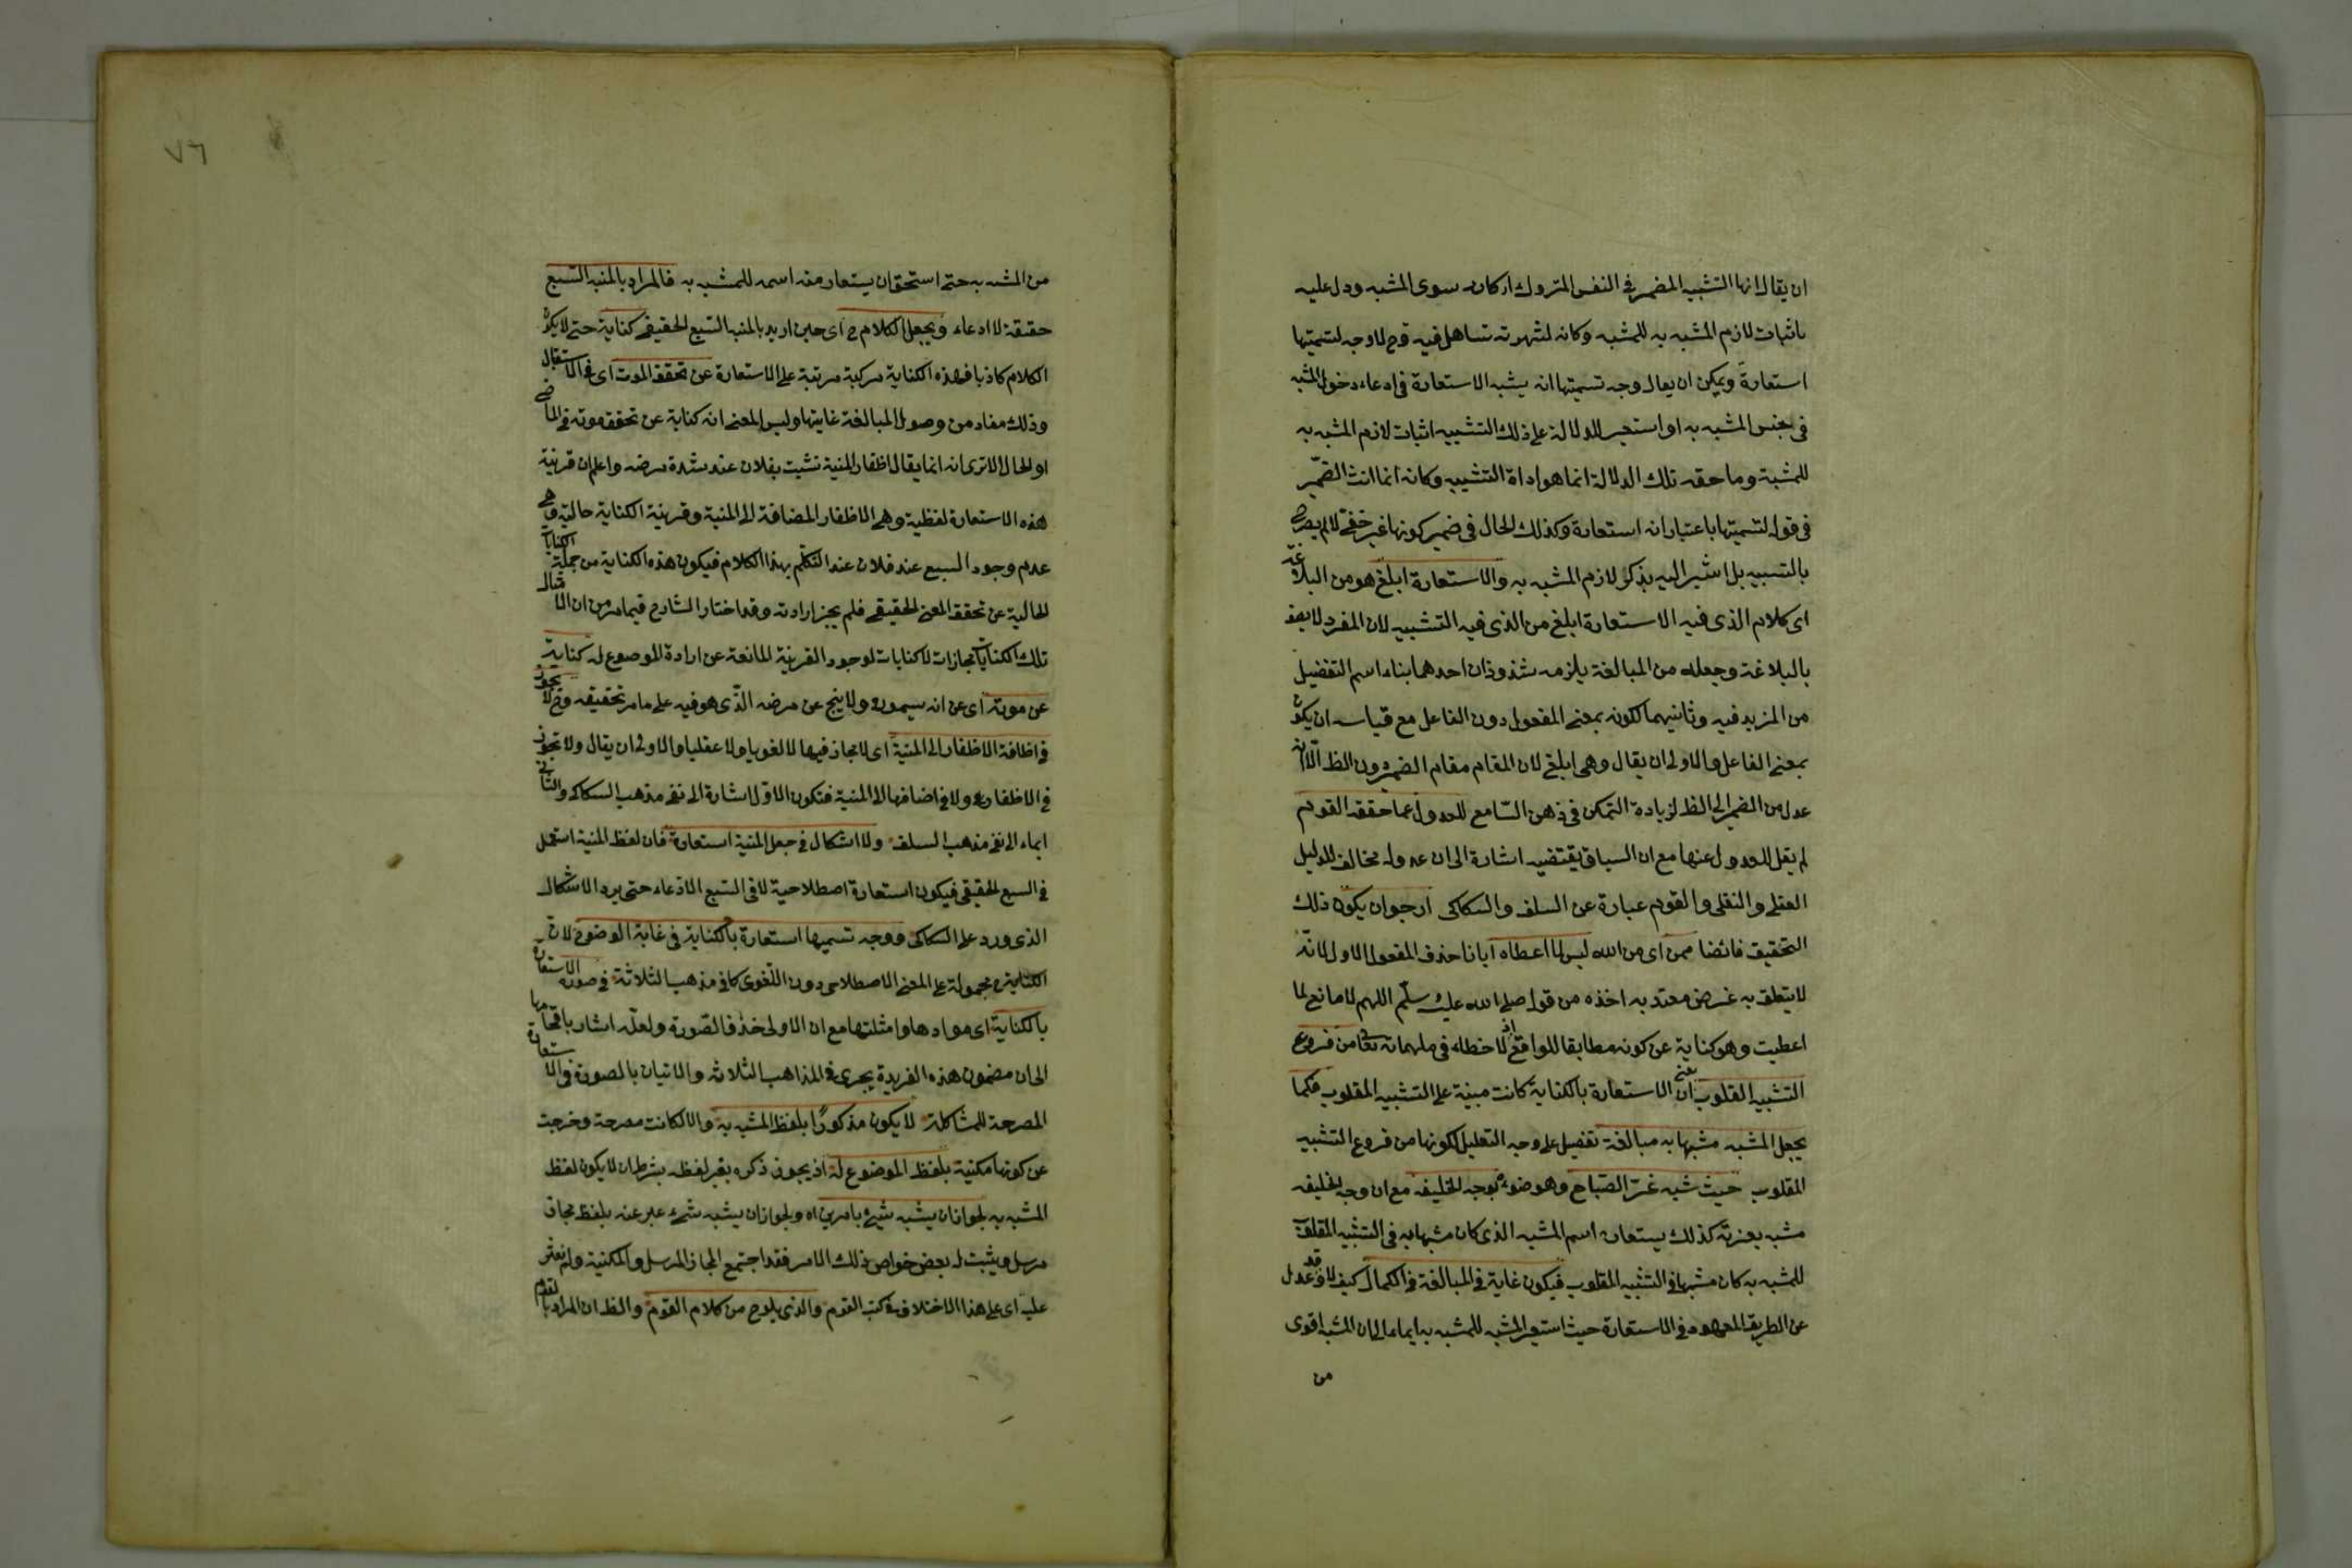 ان يقال انها التشبيه المضمر في النفس المتروك اركانه سوى المشبه ودل عليه
باثبات لازم المشبه به للمشبه وكانه لشهرته تساهل فيه وح لا وجه لتسميتها
استعارة ويمكن ان يقال وجه تسميتها انه يشبه الاستعارة في ادعاء دخول المشبه
في جنس المشبه به او استعير للدلالة على ذلك التشبيه اثبات لازم المشبه به
للمشبه وما حقه تلك الدلالة انما هو اداة التشبيه وكانه انما انث الضمير
في قوله لتسميتها باعتبار انه استعارة وكذلك الحال في ضمير كونها غير خفي لا لم يصرح
بالتشبيه بل اشير اليه بذكر لازم المشبه به والاستعارة ابلغ هو من البلاغة
اى كلام الذى فيه الاستعارة ابلغ من الذى فيه التشبيه لان المفرد لا يوصف
بالبلاغة وجعله من المبالغة يلزمه شذوذان احدهما بناء اسم التفضيل
من المزيد فيه وثانيهما لكونه بمعنى المفعول دون الفاعل مع قياسه ان يكون
بمعنى الفاعل والاولى ان يقال وهى ابلغ لان المقام مقام الضمير دون الظ الا انه
عدل من الضمير الى الظ لزيادة التمكن في ذهن السامع للعدول عما حققه القوم
لم يقل للعدول عنها مع ان السياق يقتضيه اشارة الى ان عدوله مخالف للدليل
العقلى والنقلى والقوم عبارة عن السلف والسكاكى ارجو ان يكون ذلك
التحقيق فائضا ممن اى من الله ليس لما اعطاه ايانا حذف المفعول الاول لانه
لا يتعلق به غرض معتد به اخذه من قوله صلى الله عليه وسلم اللهم لا مانع لما
اعطيت وهو كناية عن كونه مطابقا للواقع اذ لا خطاء في ملهماته تعالى من فروع
التشبيه المقلوب يعنى ان الاستعارة بالكناية كانت مبنية على التشبيه المقلوب فكما
يجعل المشبه مشبها به مبالغة تفصيل على وجه التعليل لكونها من فروع التشبيه
المقلوب حيث شبه غرة الصباح وهو ضوءه بوجه الخليفة مع ان وجه الخليفة
مشبه بغرته كذلك يستعار اسم المشبه الذى كان مشبها به في التشبيه المقلوب
للمشبه به كان مشبها في التشبيه المقلوب فيكون غاية في المبالغة في الكمال كيف لا وقد عدل
عن الطريق المعهود في الاستعارة حيث استعير المشبه للمشبه به ايماء الى ان المشبه اقوى
من
٧٦
من المشبه به حتى استحق ان يستعار منه اسمه للمشبه به فالمراد بالمنية السبع
حقيقة لا ادعاء ويجعل الكلام ح اى حين اريد بالمنية السبع الحقيقي كناية حتى لا يكون
الكلام كاذبا فهذه الكناية مركبة مرتبة على الاستعارة عن تحقق الموت اى في الاستقبال
وذلك مفاد من وصول المبالغة غايتها وليس المعنى انه كناية عن تحقق موته في الماضى
او الحال الا ترى انه انما يقال اظفار المنية نشبت بفلان عند شدة مرضه واعلم ان قرينة
هذه الاستعارة لفظية وهى الاظفار المضافة الى المنية وقرينة الكناية حالية وهى
عدم وجود السبع عند فلان عند التكلم بهذا الكلام فيكون هذه الكناية من جملة الكنايات
الحالية عن تحقق المعنى الحقيقي فلم يجز ارادته وقد اختار الشارح فيما مر من ان امثال
تلك الكنايات مجازات لا كنايات لوجود القرينة المانعة عن ارادة الموضوع له كناية
عن موته اى عن انه سيموت ولا ينج عن مرضه الذى هو فيه على ما مر تحقيقه وح لا يجوز
في اظافة الاظفار الى المنية اى لا مجاز فيها لا لغويا ولا عقليا والاولى ان يقال ولا تجوز
في الاظفار ولا في اضافتها الى المنية فتكون الاول اشارة الى نفى مذهب السكاكى والثانى
ايماء الى نفى مذهب السلف ولا اشكال في جعل المنية استعارة فان لفظ المنية استعمل
في السبع الحقيقى فيكون استعارة اصطلاحية لا في السبع الادعاء حتى يرد الاشكال
الذى ورد على السكاكى ووجه تسميتها استعارة بالكناية في غاية الوضوح لان
الكناية محمولة على المعنى الاصطلاحى دون اللغوى كما في مذهب الثلاثة في صورة الاستعارة
بالكناية اى موادها وامثلتها مع ان الاولى حذف الصورة ولعله اشار باقحامها
الى ان مضمون هذه الفريدة يجرى في المذاهب الثلاث والاتيان بالصورة في الاستعارة
المصرحة للمشاكلة لا يكون مذكورا بلفظ المشبه به والا لكانت مصرحة وخرجت
عن كونها مكنية بلفظ الموضوع له اذ يجوز ذكره بغير لفظه بشرط ان لا يكون لفظ
المشبه به لجواز ان يشبه شئ بامرين اه ولجواز ان يشبه شئ عبر عنه بلفظ مجاز
مرسل ويثبت له بعض خواص ذلك الامر فقد اجتمع المجاز المرسل والمكنية ولم نعثر
عليه اى على هذا الاختلاف في كتب القوم والذى يلوح من كلام القوم والظ ان المراد بالقوم